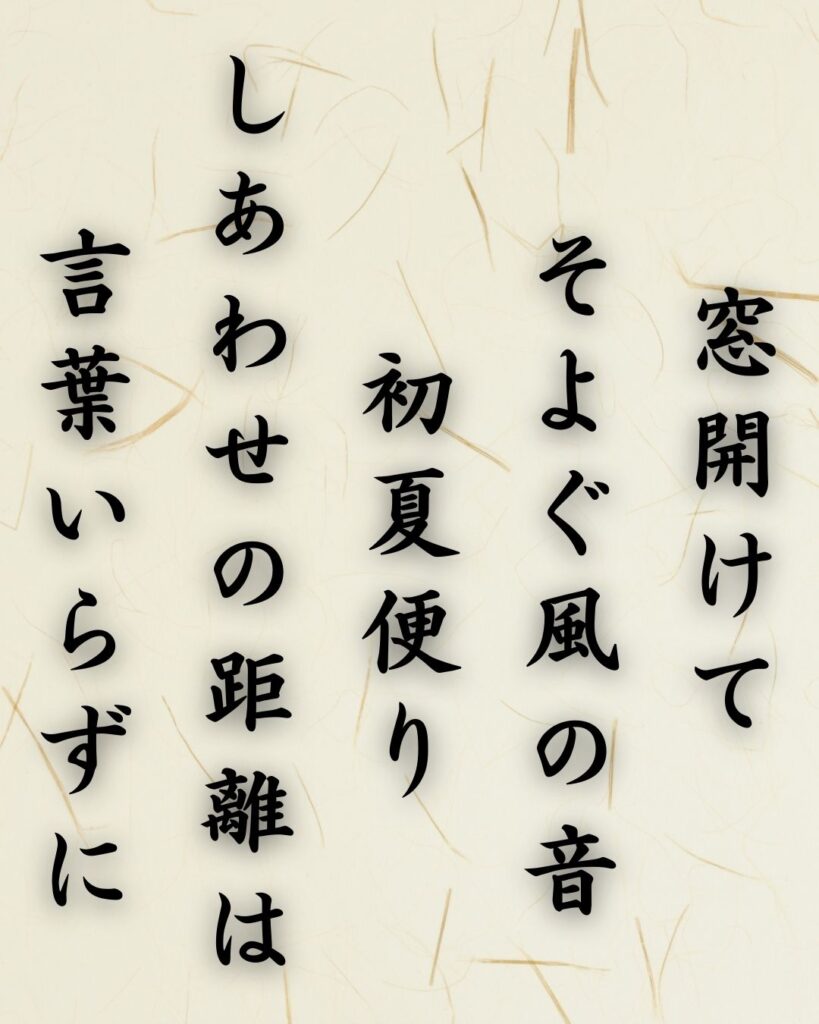 窓開けて
そよぐ風の音
初夏便り
しあわせの距離は
言葉いらずに